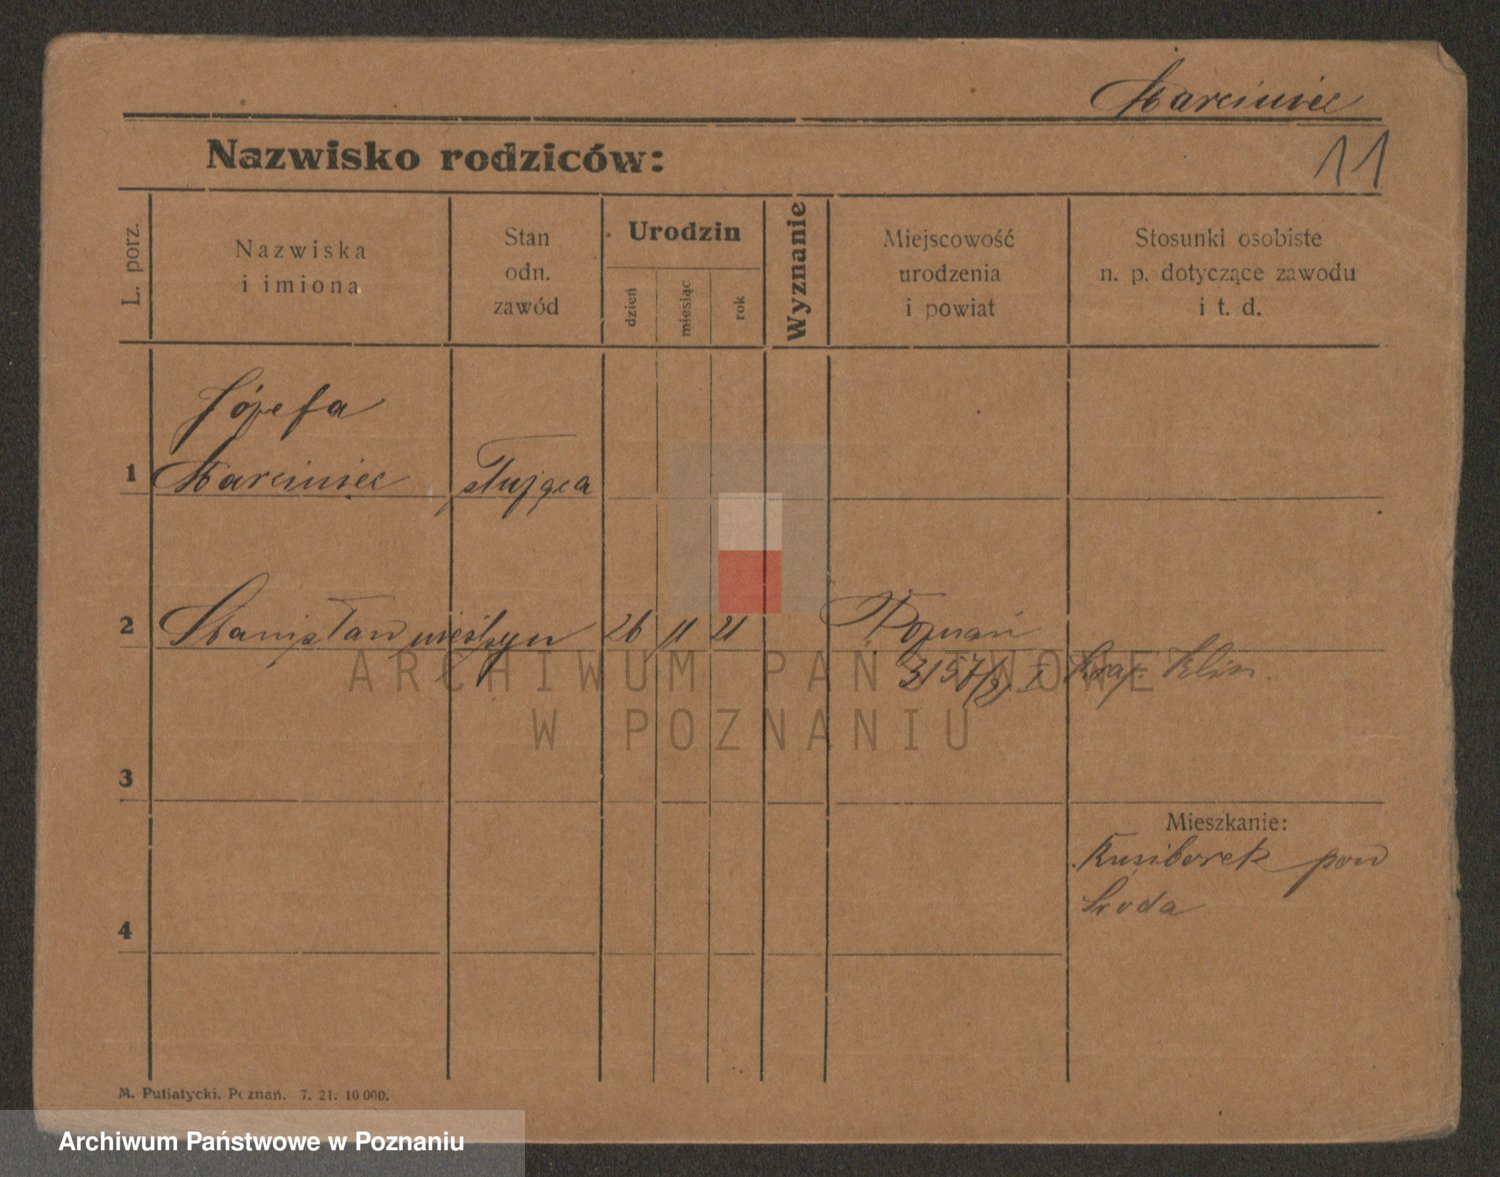 Marciniec
Nazwisko rodziców:
11
L. porz.
Nazwiska
i imiona
Stan
odn.
zawód
Urodzin
dzień
miesiąc
rok
Wyznanie
Miejscowość
urodzenia
i powiat
Stosunki osobiste
n. p. dotyczące zawodu
i t. d.
Józefa
1 Marciniec służąca
2 Stanisław nieślubny 26 11 21 Poznań
3157/21 I
3
Mieszkanie:
pow
Środa
4
M. Putiatycki. Poznań. 7. 21. 10 000.
ARCHIWUM PAŃSTWOWE
W POZNANIU
Archiwum Państwowe w Poznaniu